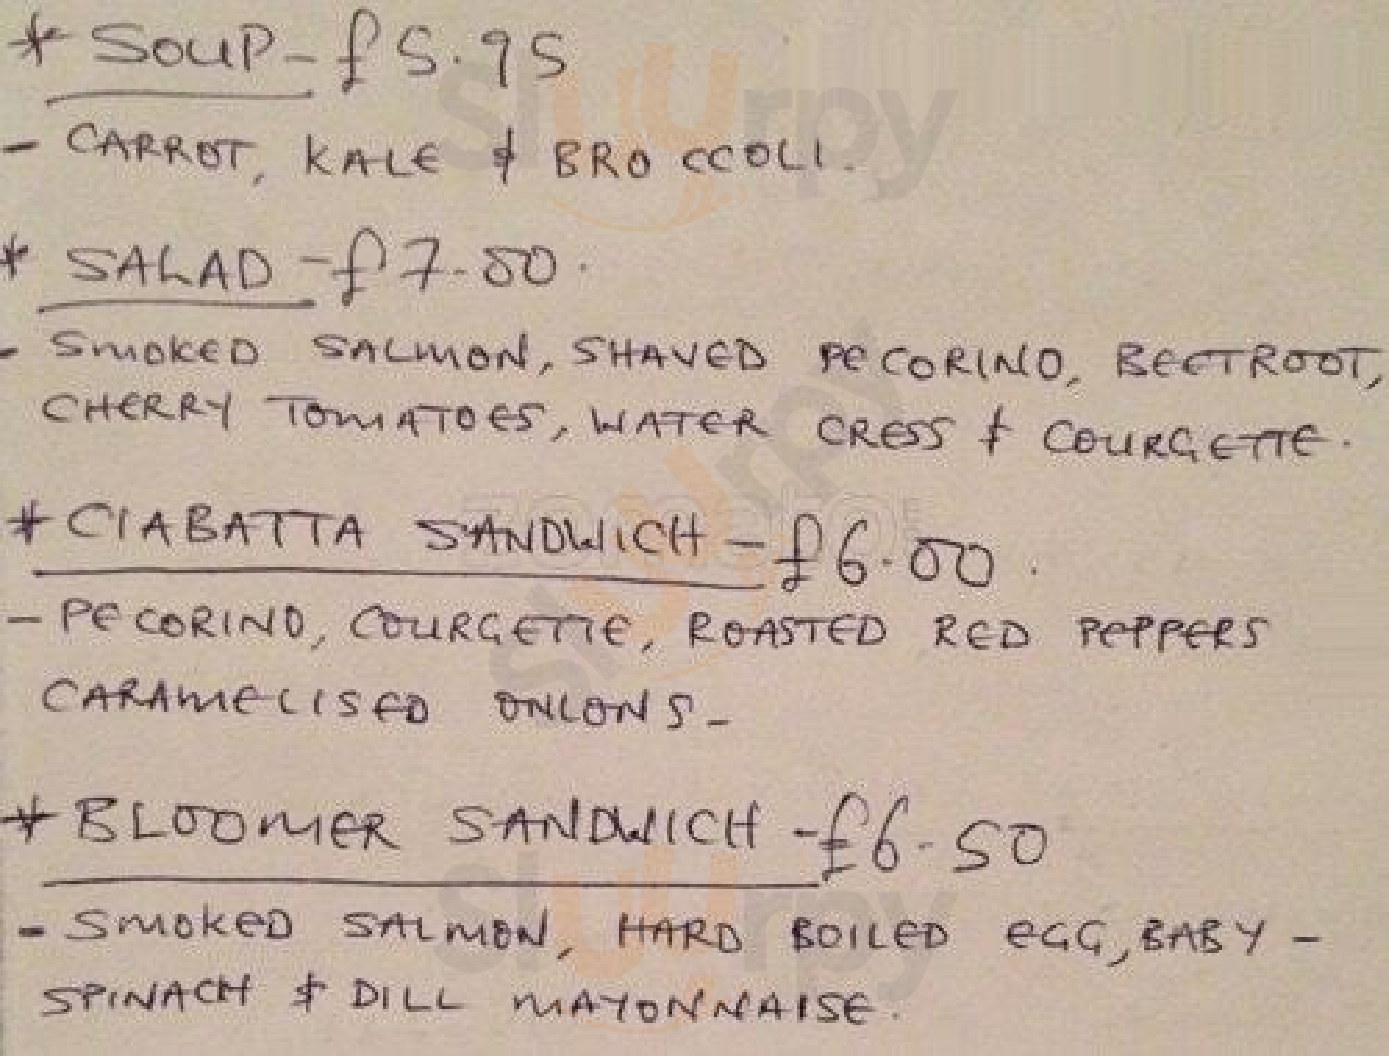 * SOUP - £5.95
- CARROT, KALE & BROCCOLI.
* SALAD - £7.00.
- SMOKED SALMON, SHAVED PECORINO, BEETROOT,
CHERRY TOMATOES, WATER CRESS & COURGETTE.
* CIABATTA SANDWICH - £6.00.
- PECORINO, COURGETTE, ROASTED RED PEPPERS
CARAMELISED ONIONS -
* BLOOMER SANDWICH - £6.50
- SMOKED SALMON, HARD BOILED EGG, BABY -
SPINACH & DILL MAYONNAISE.
Sluurpy
Sluurpy
Sluurpy